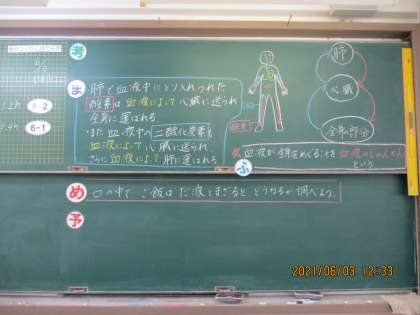 考
ま
肺で血液中にとり入れられた
酸素は血液によって心臓に送られ
全身に運ばれる。
また血液中の二酸化炭素も
血液によって心臓に送られ
さらに血液によって肺に運ばれる
酸素
肺
心臓
全身の部分
血液が全身をめぐることを血液のじゅんかん
という。
ふ
6-2
6-1
め
口の中で ご飯は だ液とまざると どうなるか調べよう。
予
2021/06/03 12:33